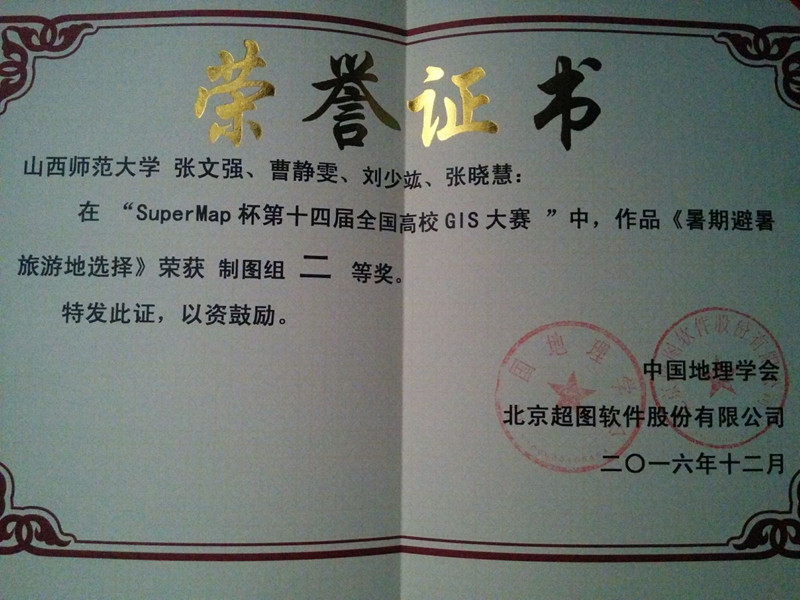 荣誉证书
山西师范大学 张文强、曹静雯、刘少竑、张晓慧：
在 “SuperMap 杯第十四届全国高校 GIS 大赛 ”中，作品《暑期避暑
旅游地选择》荣获 制图组 二 等奖。
特发此证，以资鼓励。
中国地理学会
北京超图软件股份有限公司
二〇一六年十二月